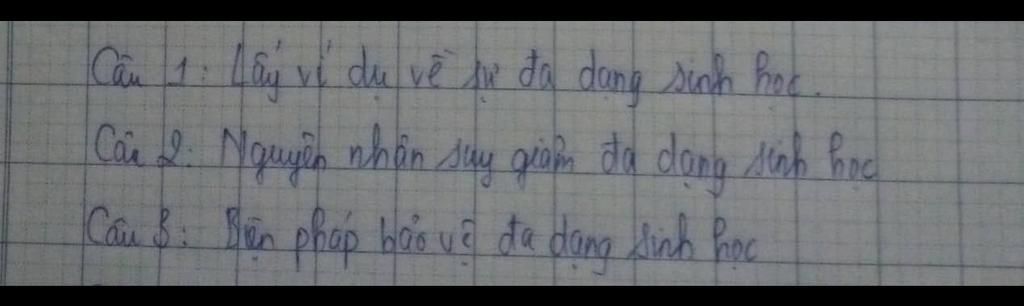 Câu 1: Lấy ví dụ về sự đa dạng sinh học.
Câu 2: Nguyên nhân suy giảm đa dạng sinh học
Câu 3: Biện pháp bảo vệ đa dạng sinh học